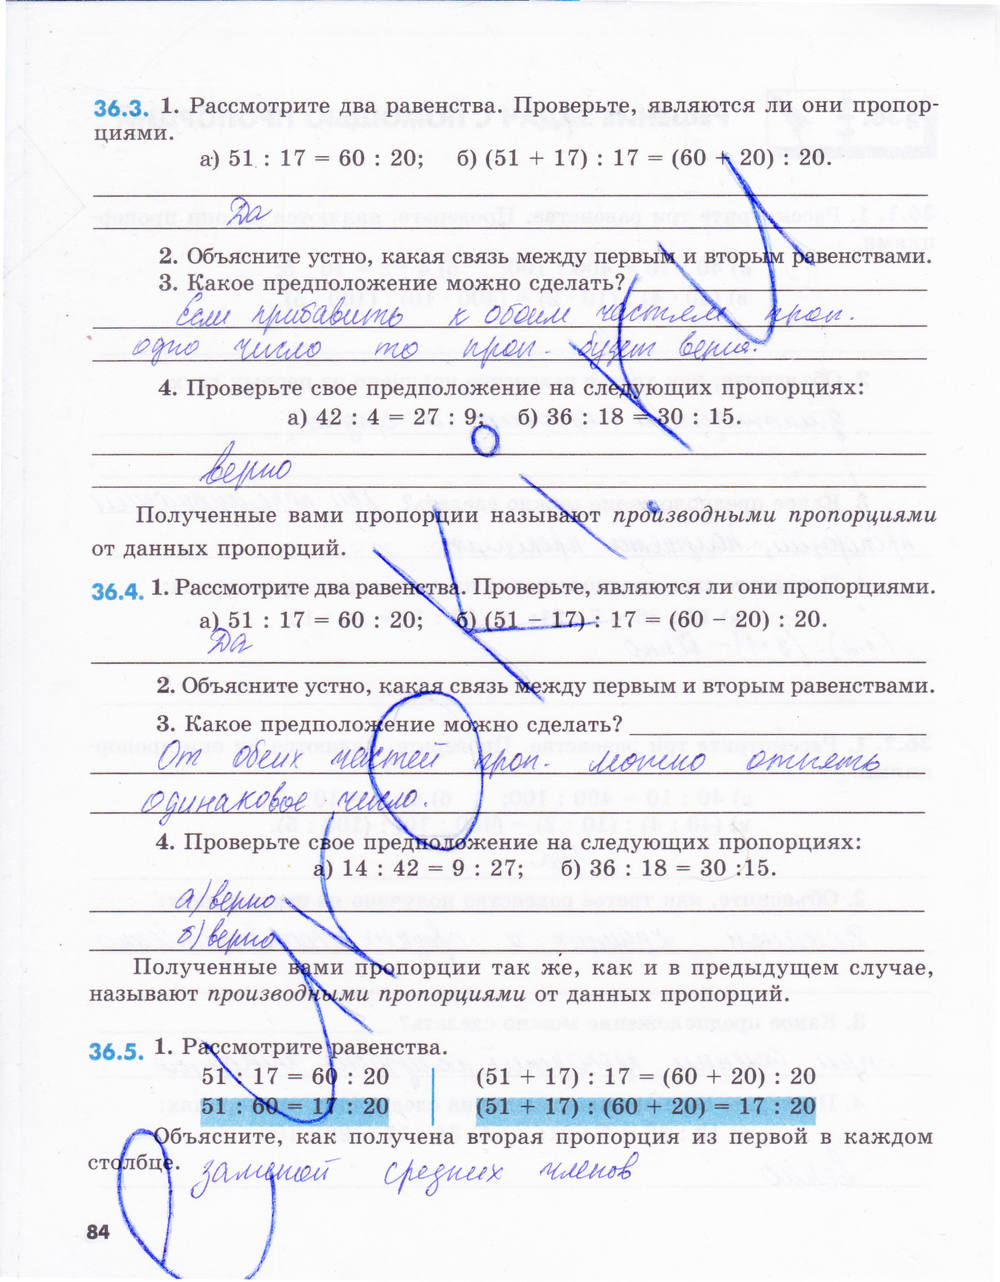 36.3. 1. Рассмотрите два равенства. Проверьте, являются ли они пропор-
циями.
а) 51 : 17 = 60 : 20; б) (51 + 17) : 17 = (60 + 20) : 20.
Да
2. Объясните устно, какая связь между первым и вторым равенствами.
3. Какое предположение можно сделать?
Если прибавить к обоим частям проп.
одно число то проп. будет верна.
4. Проверьте свое предположение на следующих пропорциях:
а) 42 : 4 = 27 : 9; б) 36 : 18 = 30 : 15.
верно
Полученные вами пропорции называют производными пропорциями
от данных пропорций.
36.4. 1. Рассмотрите два равенства. Проверьте, являются ли они пропорциями.
а) 51 : 17 = 60 : 20; б) (51 – 17) : 17 = (60 – 20) : 20.
Да
2. Объясните устно, какая связь между первым и вторым равенствами.
3. Какое предположение можно сделать?
От обеих частей проп. можно отнять
одинаковое число.
4. Проверьте свое предположение на следующих пропорциях:
а) 14 : 42 = 9 : 27; б) 36 : 18 = 30 :15.
а) верно
б) верно
Полученные вами пропорции так же, как и в предыдущем случае,
называют производными пропорциями от данных пропорций.
36.5. 1. Рассмотрите равенства.
51 : 17 = 60 : 20 (51 + 17) : 17 = (60 + 20) : 20
51 : 60 = 17 : 20 (51 + 17) : (60 + 20) = 17 : 20
Объясните, как получена вторая пропорция из первой в каждом
столбце. заменой средних членов
84